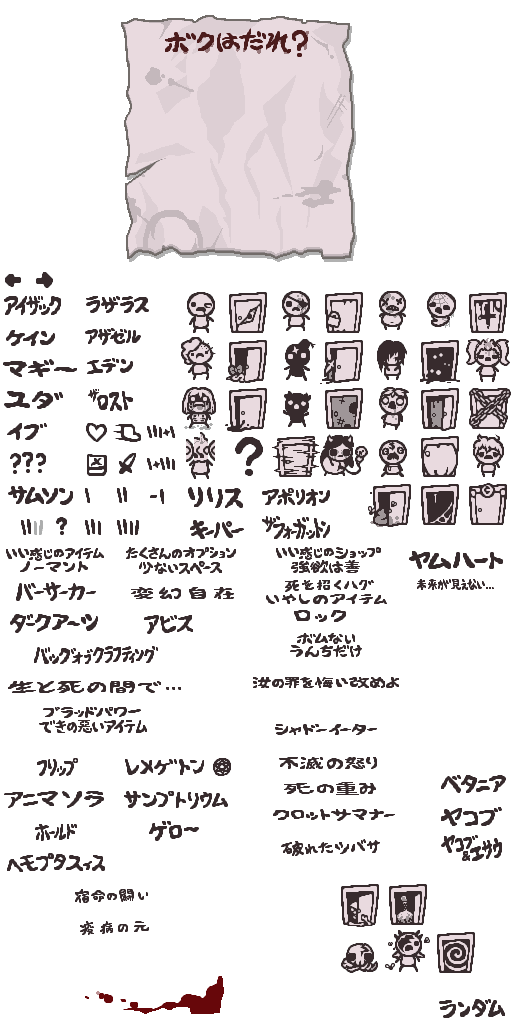 ボクはだれ?
アイザック ラザラス
ケイン アザゼル
マギー エデン
ユダ ザ・ロスト
イブ
???
サムソン リリス アポリオン
? キーパー ザ・フォーガットン
いい感じのアイテム
ノーマント
たくさんのオプション
少ないスペース
いい感じのショップ
強欲は善
ヤムハート
未来が見えない...
バーサーカー 変幻自在
死を招くハグ
いやしのアイテム
ダークアーツ アビス
ロック
ボムない
うんちだけ
バッグオブクラフティング
生と死の間で...
汝の罪を悔い改めよ
ブラッドパワー
できの悪いアイテム
シャドーイーター
フリップ レメゲトン
不滅の怒り
死の重み
ベタニア
アニマソラ サンプトリウム
クロットサマナー
ヤコブ
ホールド ゲロ~
破れたツバサ
ヤコブ
&エサウ
ヘモプタスィス
宿命の闘い
疫病の元
ランダム